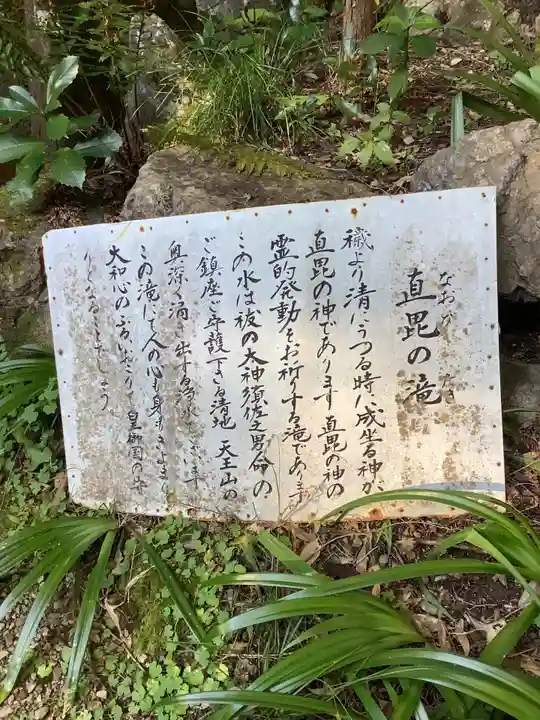 直毘の滝
なおび たき
穢より清にうつる時に成坐る神が
直毘の神であります 直毘の神の
霊的発動をお祈りする滝であります
この水は祓の大神須佐之男命の
ご鎮座ご守護下さる清地 天王山の
奥深く涌き出する浄水であります
この滝にて人の心も身も
大和心の 皇御國の
ましょう